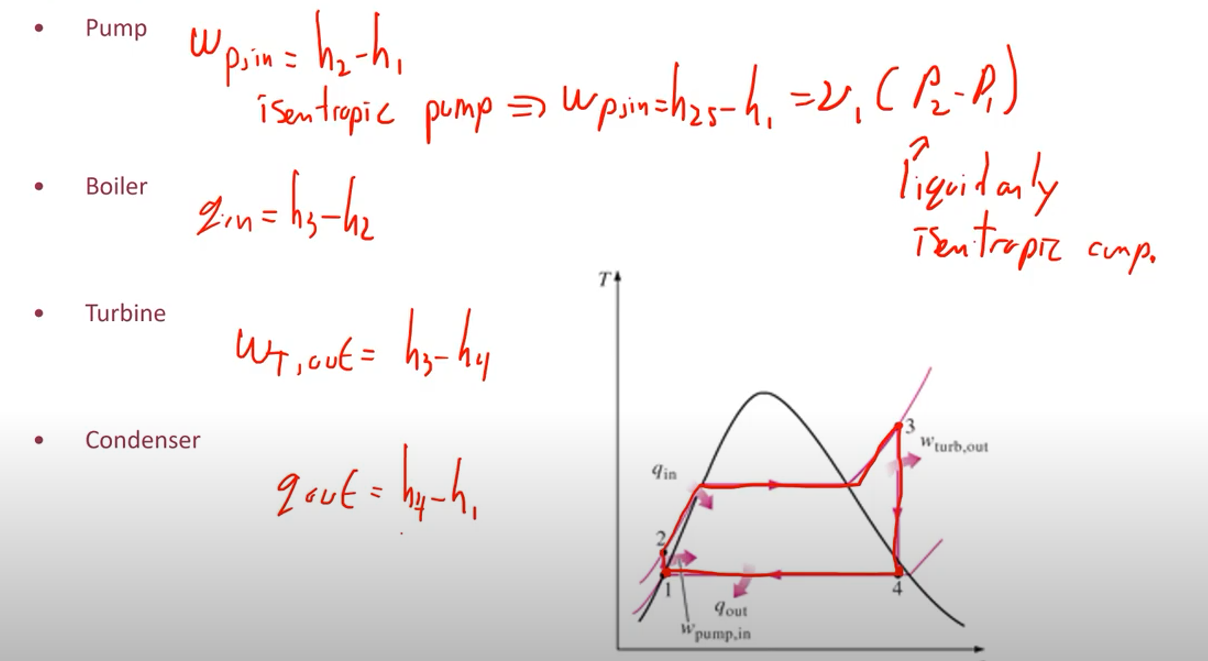 • Pump
w_p,in = h_2 - h_1
isentropic pump ⇒ w_p,in = h_2s - h_1 = v_1 (P_2 - P_1)
↗
liquid only
isentropic comp.
• Boiler
q_in = h_3 - h_2
• Turbine
w_T,out = h_3 - h_4
• Condenser
q_out = h_4 - h_1
T
3
w_turb,out
q_in
2
1
4
q_out
w_pump,in